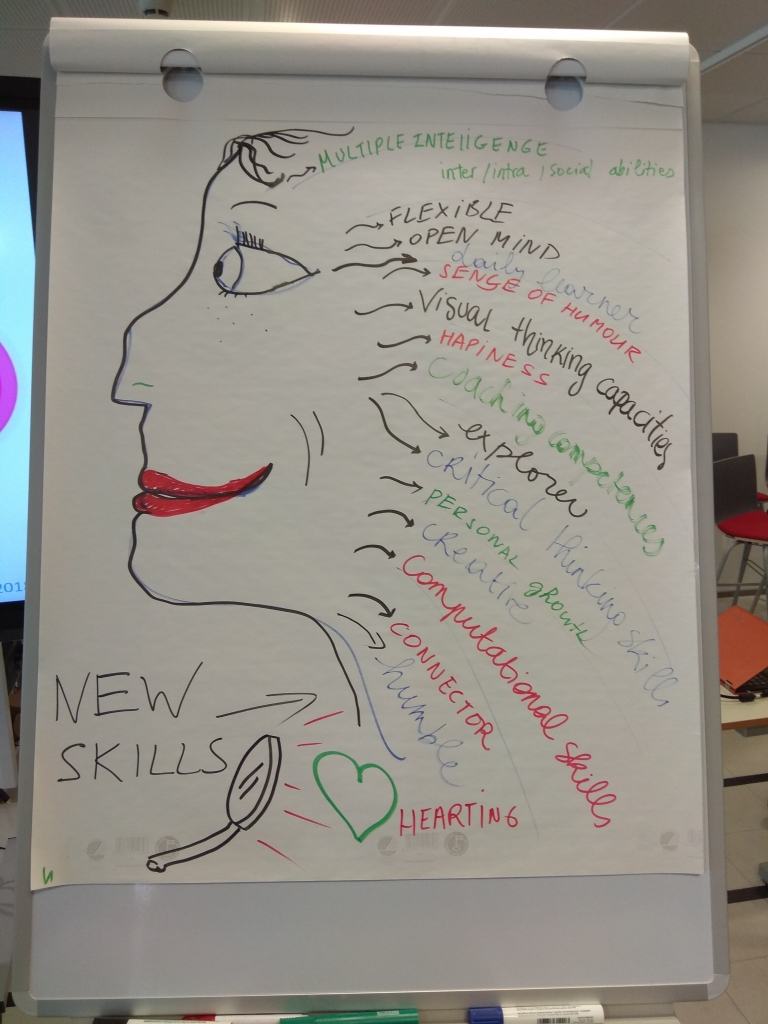 MULTIPLE INTElIGENGE
inter/intra/social abilities
FLEXiBLE
OPEN MiND
daily learner
SENGE OF HUMOUR
Visual thinking capacities
HAPINESS
Coaching competences
explorer
CRITICAL thinking skills
PERSONAL gROWTH
CREATIVE
Computational skills
CONNECTOR
humble
NEW
SKILLS
HEARTING